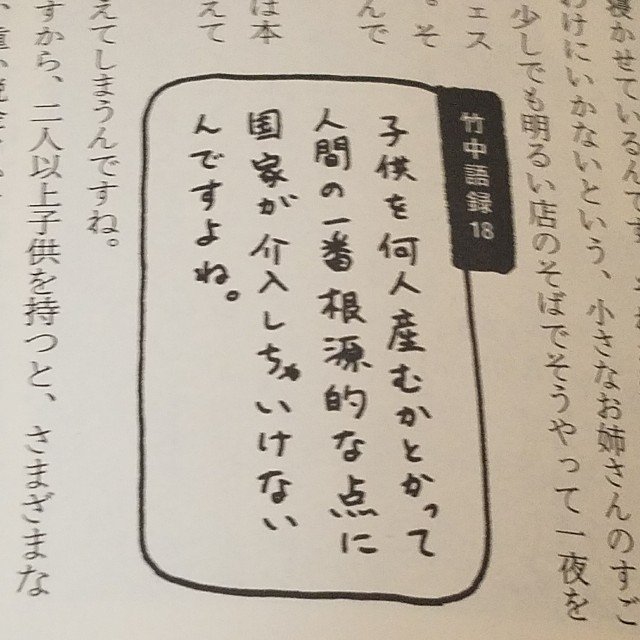 寝かせているんです
わけにいかないという、小さなお姉さんのすご
少しでも明るい店のそばでそうやって一夜を
ェス
。そ
んで
は本
えて
竹中語録18
子供を何人産むかとかって
人間の一番根源的な点に
国家が介入しちゃいけない
んですよね。
えてしまうんですね。
すから、二人以上子供を持つと、さまざまな